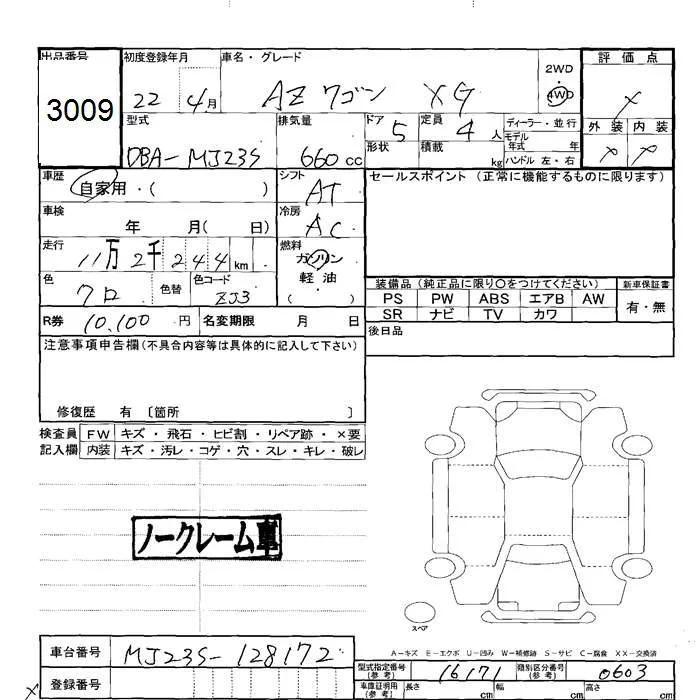 出品番号 初度登録年月 車名・グレード 2WD 評価点
3009 22 4月 AZワゴン XG 4WD ×
型式 排気量 ドア 5 定員 4人 ディーラー・並行 外装 内装
DBA-MJ23S 660cc 形状 積載 kg モデル年式 年 × ×
ハンドル 左・右
車歴 自家用・( ) シフト AT セールスポイント (正常に機能するものに限ります)
車検 年 月( 日) 冷房 AC
走行 11万2千244km 燃料 ガソリン
軽油
( )
色 クロ 色替 色コード ZJ3 装備品(純正品に限り○をつけてください) 新車保証書
PS PW ABS エアB AW 有・無
SR ナビ TV カワ
R券 10,100円 名変期限 月 日 後日品
注意事項申告欄(不具合内容等は具体的に記入して下さい)
修復歴 有 〔箇所 〕
検査員 FW キズ・飛石・ヒビ割・リペア跡・×要
記入欄 内装 キズ・汚レ・コゲ・穴・スレ・キレ・破レ
ノークレーム車
スペア
A-キズ E-エクボ U-凹み W-補修跡 S-サビ C-腐食 XX-交換済
車台番号 MJ23S-128172 型式指定番号(参考) 16171 類別区分番号(参考) 0603
× 登録番号 車庫証明用(参考) 長さ cm 幅 cm 高さ cm